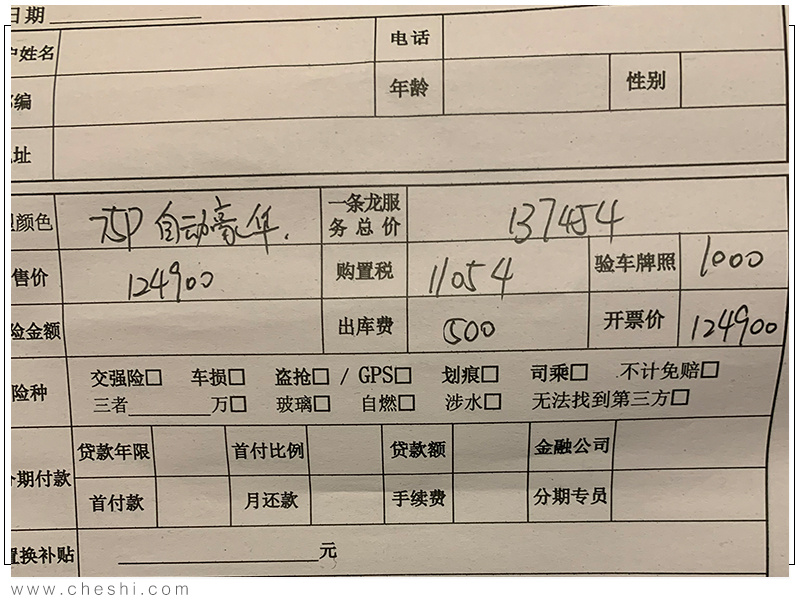 日期
户姓名 电话
邮编 年龄 性别
址
颜色 自动豪华. 一条龙服务总价 137454
售价 124900 购置税 11054 验车牌照 1000
险金额 出库费 500 开票价 124900
险种 交强险□ 车损□ 盗抢□ / GPS□ 划痕□ 司乘□ 不计免赔□
三者________万□ 玻璃□ 自燃□ 涉水□ 无法找到第三方□
分期付款 贷款年限 首付比例 贷款额 金融公司
首付款 月还款 手续费 分期专员
置换补贴 ____________________元
www.cheshi.com